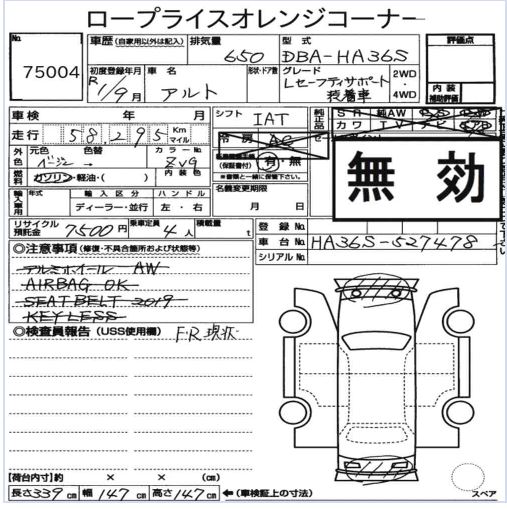 ロープライスオレンジコーナー
No. 75004
車歴 (自家用以外は記入) 排気量 650 型式 DBA-HA36S 評価点
初度登録年月 R 1/9月 車名 アルト 形状・ドア数 グレード Lセーフティサポート装着車 2WD・4WD 内装補助評価
車検 年 月 シフト IAT 純正品 SR 純AW カワ TV ナビ
走行 58,295 Km マイル 冷房 AC
外色 元色 ベージュ 色替 → カラーNo. ZVG 内装色 (保証書付) 有・無 ※書類と一緒に保管下さい。
無効
燃料 ガソリン・軽油・( )
輸入車用 年式 輸入区分 ディーラー・並行 ハンドル 左・右 名義変更期限 月 日
リサイクル預託金 7500円 乗車定員 4人 積載量 t 登録No.
車台No. HA36S-527478
シリアルNo.
◎注意事項 (修復・不具合箇所および状態等)
アルミホイール AW
AIRBAG OK
SEAT BELT 2019
KEYLESS
◎検査員報告 (USS使用欄) F・R 現状
【荷台内寸】約 × × (cm)
長さ339cm 幅147cm 高さ147cm ←(車検証上の寸法)
スペア